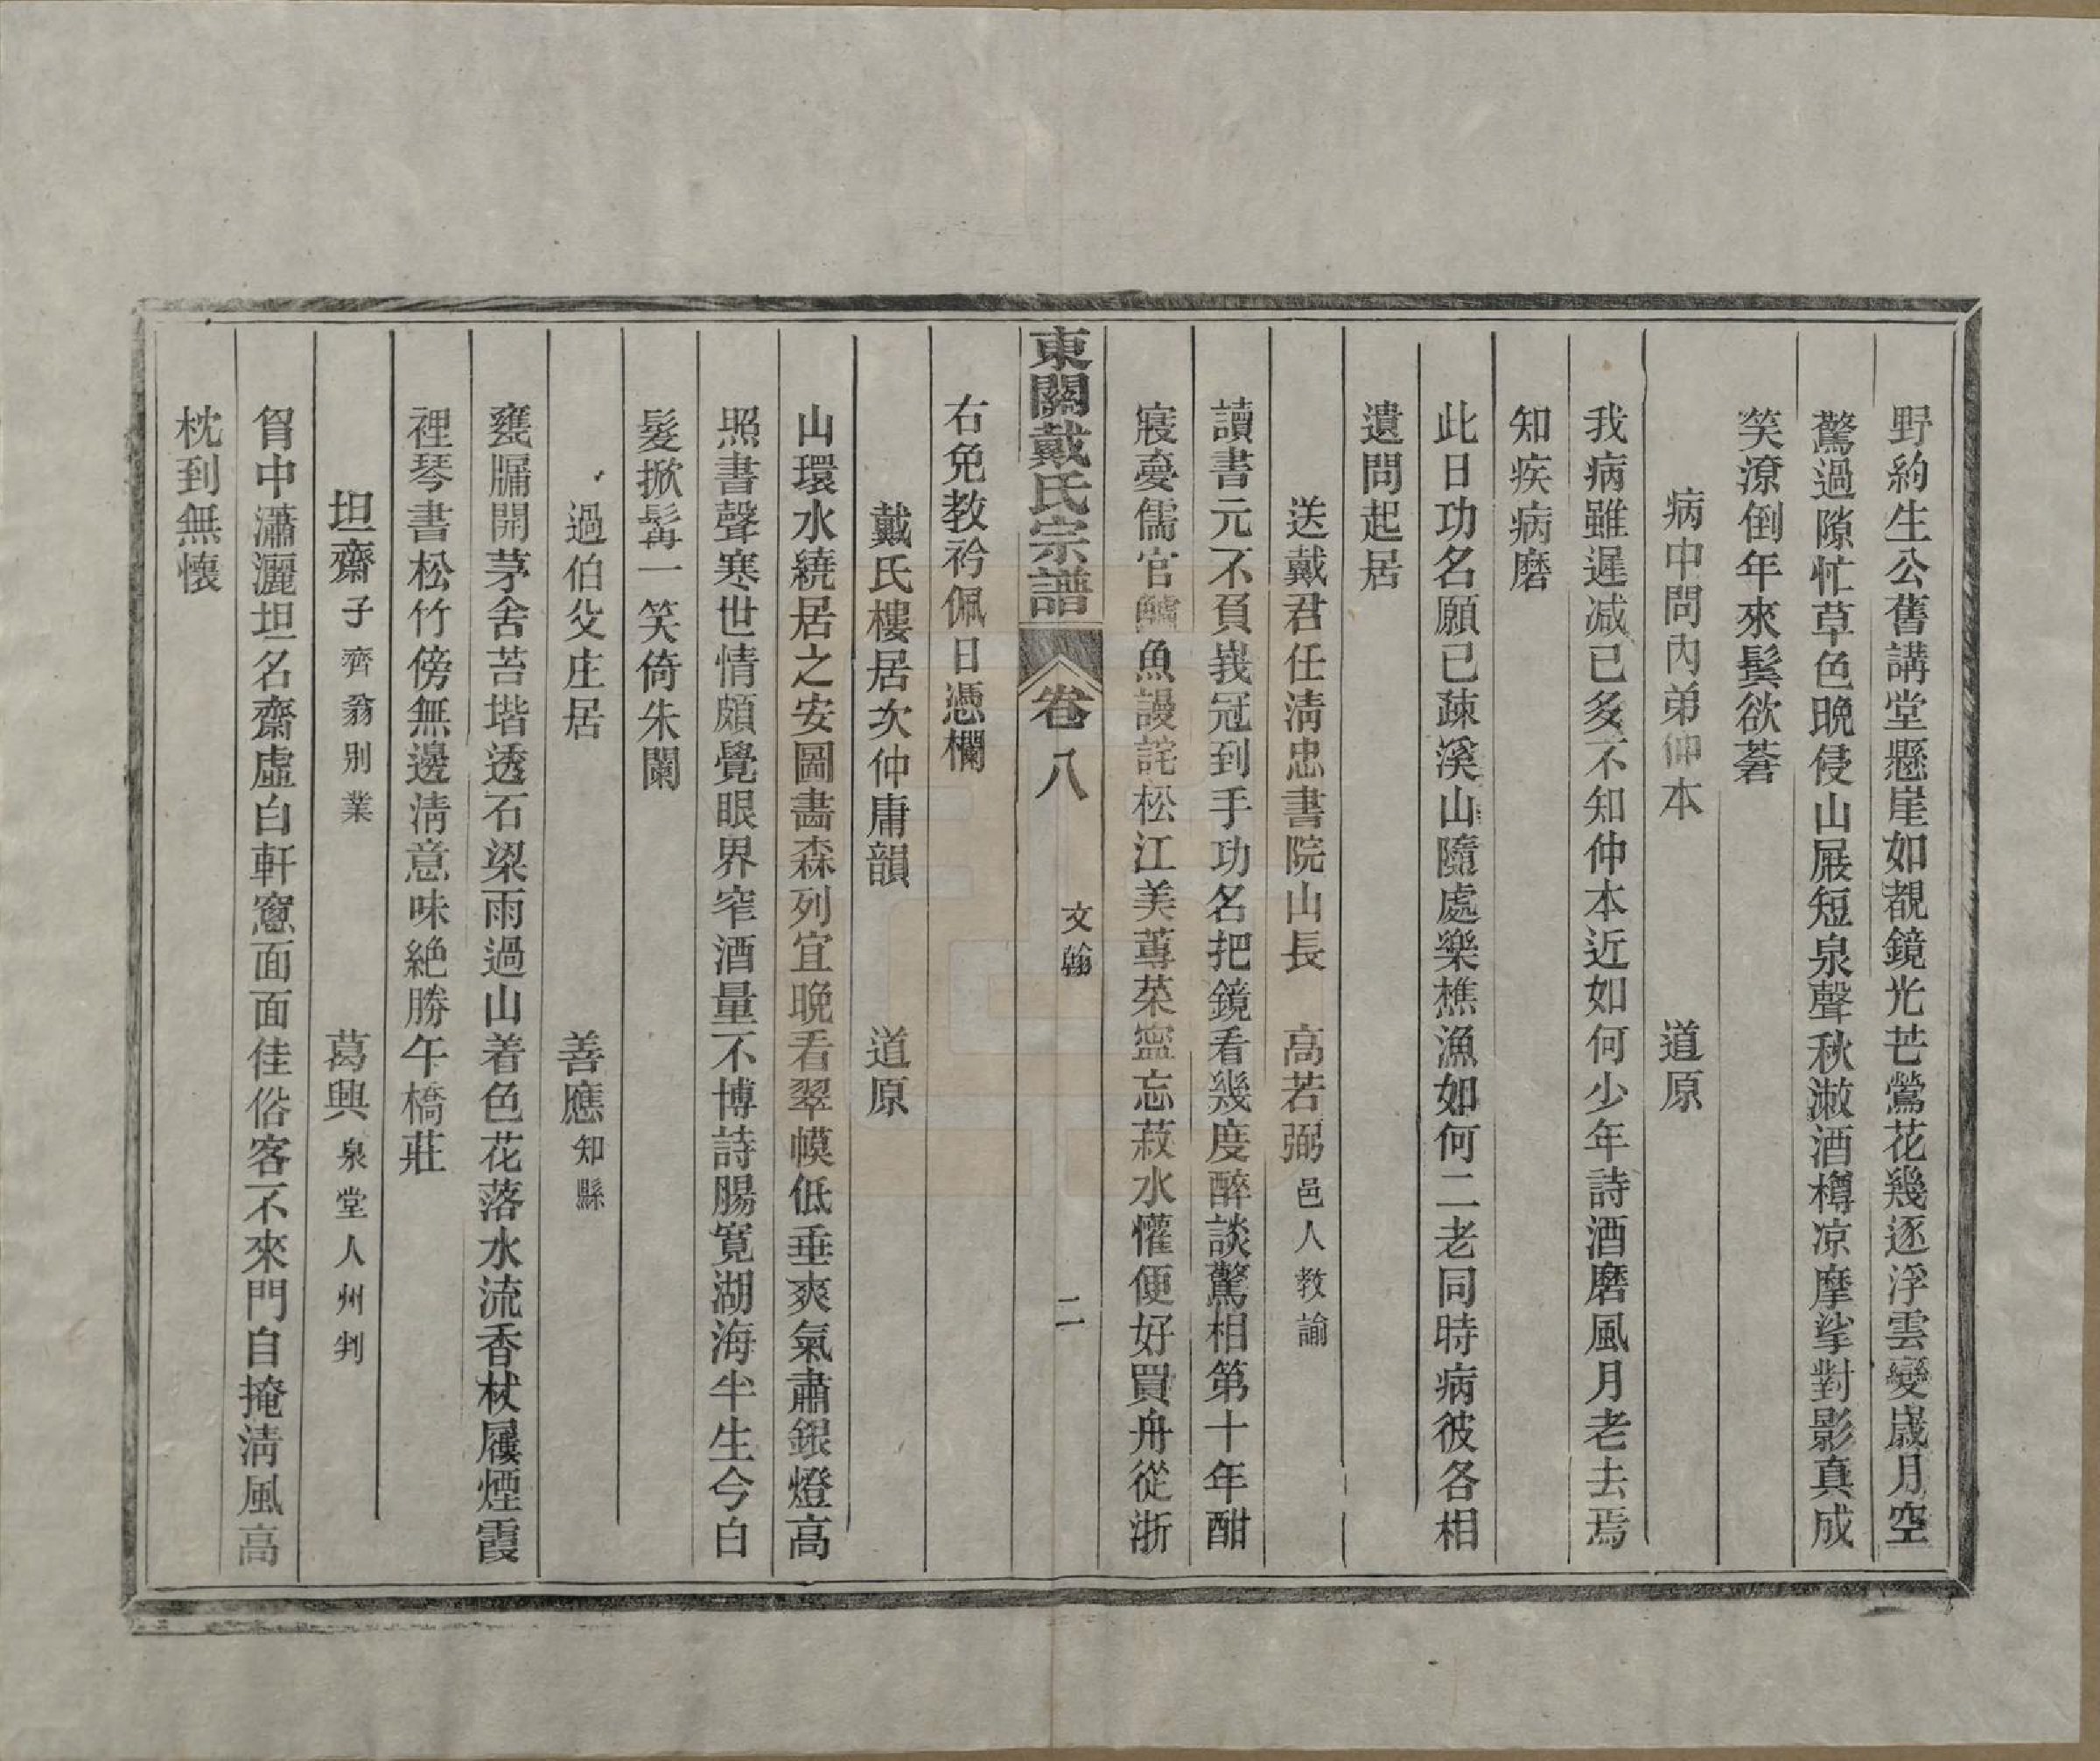 野約生公舊講堂懸崖如覩鏡光芒鶯花幾逐浮雲變嵗月空
驚過隙忙草色晚侵山屐短泉聲秋漱酒樽凉摩挲對影真成
笑潦倒年來鬂欲蒼
病中問內弟仲本　道原
我病雖遲减已多不知仲本近如何少年詩酒磨風月老去焉
知疾病磨
此日功名願已疎溪山隨處樂樵漁如何二老同時病彼各相
遺問起居
送戴君任淸忠書院山長　高若弼邑人教諭
讀書元不負峩冠到手功名把鏡看幾度醉談驚相第十年酣
寢憂儒官鱸魚謾詫松江美蓴菜寧忘菽水懽便好買舟從浙
東關戴氏宗譜　卷八　文翰　二
右免教衿佩日憑欄
戴氏樓居次仲庸韻　道原
山環水繞居之安圖畵森列宜晚看翠幙低垂爽氣肅銀燈高
照書聲寒世情頗覺眼界窄酒量不博詩腸寬湖海半生今白
髮掀髯一笑倚朱闌
過伯父庄居　善應知縣
甕牖開茅舍苔堦透石梁雨過山着色花落水流香杖屨煙霞
裡琴書松竹傍無邊淸意味絶勝午橋莊
坦齋子齊翁别業　葛興泉堂人州判
胷中瀟灑坦名齋虛白軒窻面面佳俗客不來門自掩淸風高
枕到無懷